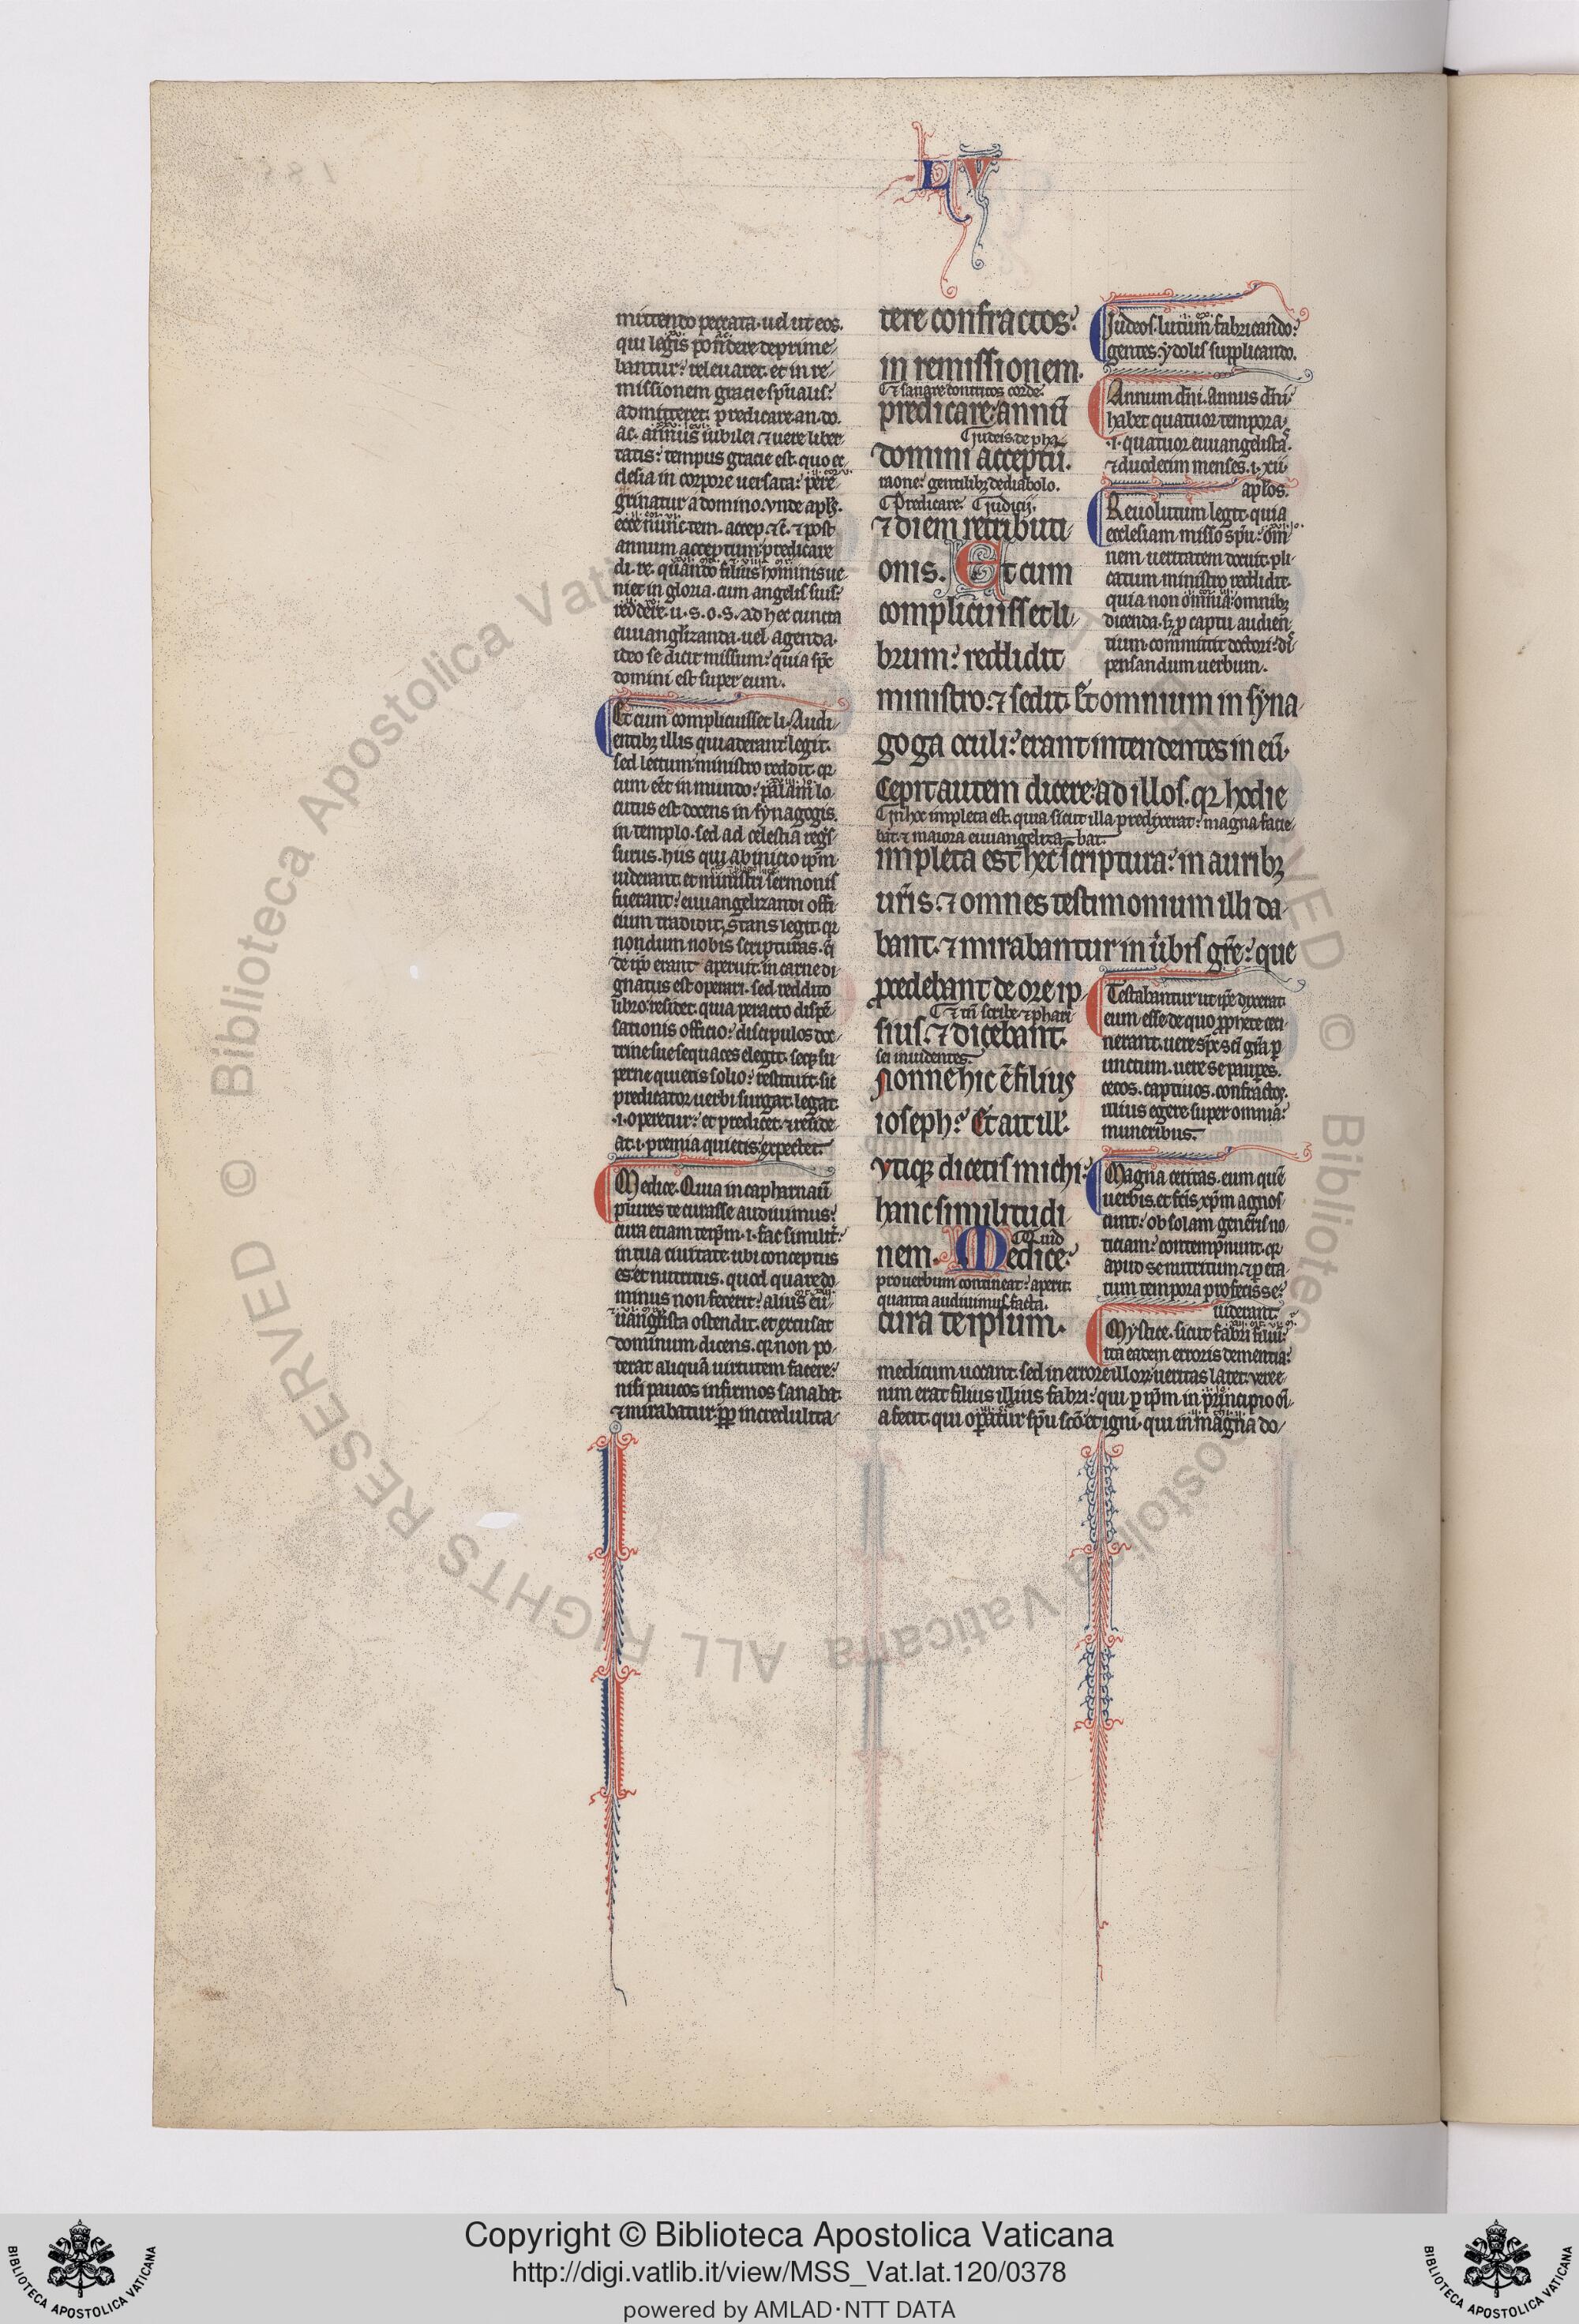 LV
mittendo peccata. uel ut eos.
qui legis pondere deprime-
bantur: releuaret. et in re-
missionem gracie spūalis:
admitteret. predicare. an. do.
ac. annus iubilei ⁊ uere liber-
tatis: tempus gracie est. quo ec-
clesia in corpore uersata: pere-
grinatur a domino. vnde apłs.
ecce nunc tem. accep. ⁊c̄. ⁊ post
annum acceptum: predicare
di. re. quando filius hominis ue-
niet in gloria. cum angelis suis:
reddere. u. s. o. s. ad hec cuncta
euuangłizanda. uel agenda.
ideo se dicit missum: quia sp̄c
domini est super eum.
Et cum complicuisset li. Audi-
entibꝫ illis qui aderant legit.
sed lectum ministro reddit. qꝛ
cum eēt in mundo: palam lo-
cutus est docens in synagogis.
in templo. sed ad celestia regs̄-
surus. hiis qui ab inicio ip̄m
uiderant. et ministri sermonis
fuerant: euuangelizandi offi-
cium tradidit. Stans legit. qꝛ
nondum nobis scripturas. q̄
de ip̄o erant aperuit. in carne di-
gnatus est operari. sed reddito
libro: residet. quia peracto dispē-
sationis officio: discipulos doc-
trine sue sequaces elegit. seqꝫ su-
perne quietis solio: restituit. sic
predicator uerbi surgat. legat.
.i. operetur: et predicet. ⁊ reside-
at. i. premia quietis. expectet.
Medice. Quia in capharnaū
plures te curasse audiuimus:
cura etiam teip̄m. i. fac similitr̄:
in tua ciuitate. ubi conceptus
es et nutritus. quod quare do-
minus non fecerit: alius eu-
uangłista ostendit. et excusat
dominum dicens. qꝛ non po-
terat aliquā uirtutem facere:
nisi paucos infirmos sanabat.
⁊ mirabatur ꝓp̄ incredulita-
tere confractos:
in remissionem.
Et sanare contritos corde.
predicare: annū
Iudeis de pha-
domini acceptū.
raone: gentilibꝫ de diabolo.
Predicare. Iudicij.
⁊ diem retributi-
onis. Et cum
complicuisset li-
brum: reddidit
ministro: ⁊ sedit. Et omnium in syna-
goga oculi: erant intendentes in eū.
Cepit autem dicere: ad illos. qꝛ hodie
In hoc impleta est. quia sicut illa predixerat: magna facie-
bat. ⁊ maiora euuangeliza-bat.
impleta est hec scriptura: in auribꝫ
ur̄is. ⁊ omnes testimonium illi da-
bant. ⁊ mirabantur in ūbis gr̄e: que
ꝓcedebant de ore ip-
Et tn̄ scribe ⁊ phari-
sius. ⁊ dicebant.
sei inuidentes.
Nonne hic ē filius
ioseph: Et ait ill.
Vtiqꝫ dicetis michi:
hanc similitudi-
Quid
nem. Medice:
prouerbum contineat: aperit.
quanta audiuimus facta.
cura teipsum.
Iudeos. lutum fabricando:
gentes. ydolis supplicando.
Annum dn̄i. annus dn̄i
habet quatuor tempora.
.i. quatuor euuangelistas.
⁊ duodecim menses. i. xii.
apłos.
Reuolutum legit. quia
ecclesiam misso sp̄u: om-
nem ueritatem docuit. pli-
catum ministro reddidit.
quia non omnia: omnibꝫ
dicenda. sꝫ ꝓ captu audien-
tium. committit doctori: dis-
pensandum uerbum.
Testabantur ut ip̄e dixerat
eum esse de quo ꝓphete ceci-
nerant. uere sp̄c sc̄i gr̄a ꝑ
unctum. uere se paupes.
cecos. captiuos. confractos.
illius egere super omnia:
muneribus.
Magna cecitas. eum quē
uerbis. et fc̄is. xp̄m agnos-
cunt: ob solam generis no-
ticiam: contempnunt. qꝛ
apud se nutritum. ⁊ ꝑ eta-
tum tempora profecisse:
uiderant.
Mystice. sicut fabri filiū:
ita eadem erroris dementia:
medicum uocant. sed in errore illoꝝ ueritas latet. vere e-
nim erat filius illius fabri: qui ꝑ ip̄m in principio oī-
a fecit. qui oꝑatur sp̄u scō et igni. qui in magna do-
Copyright © Biblioteca Apostolica Vaticana
http://digi.vatlib.it/view/MSS_Vat.lat.120/0378
powered by AMLAD·NTT DATA